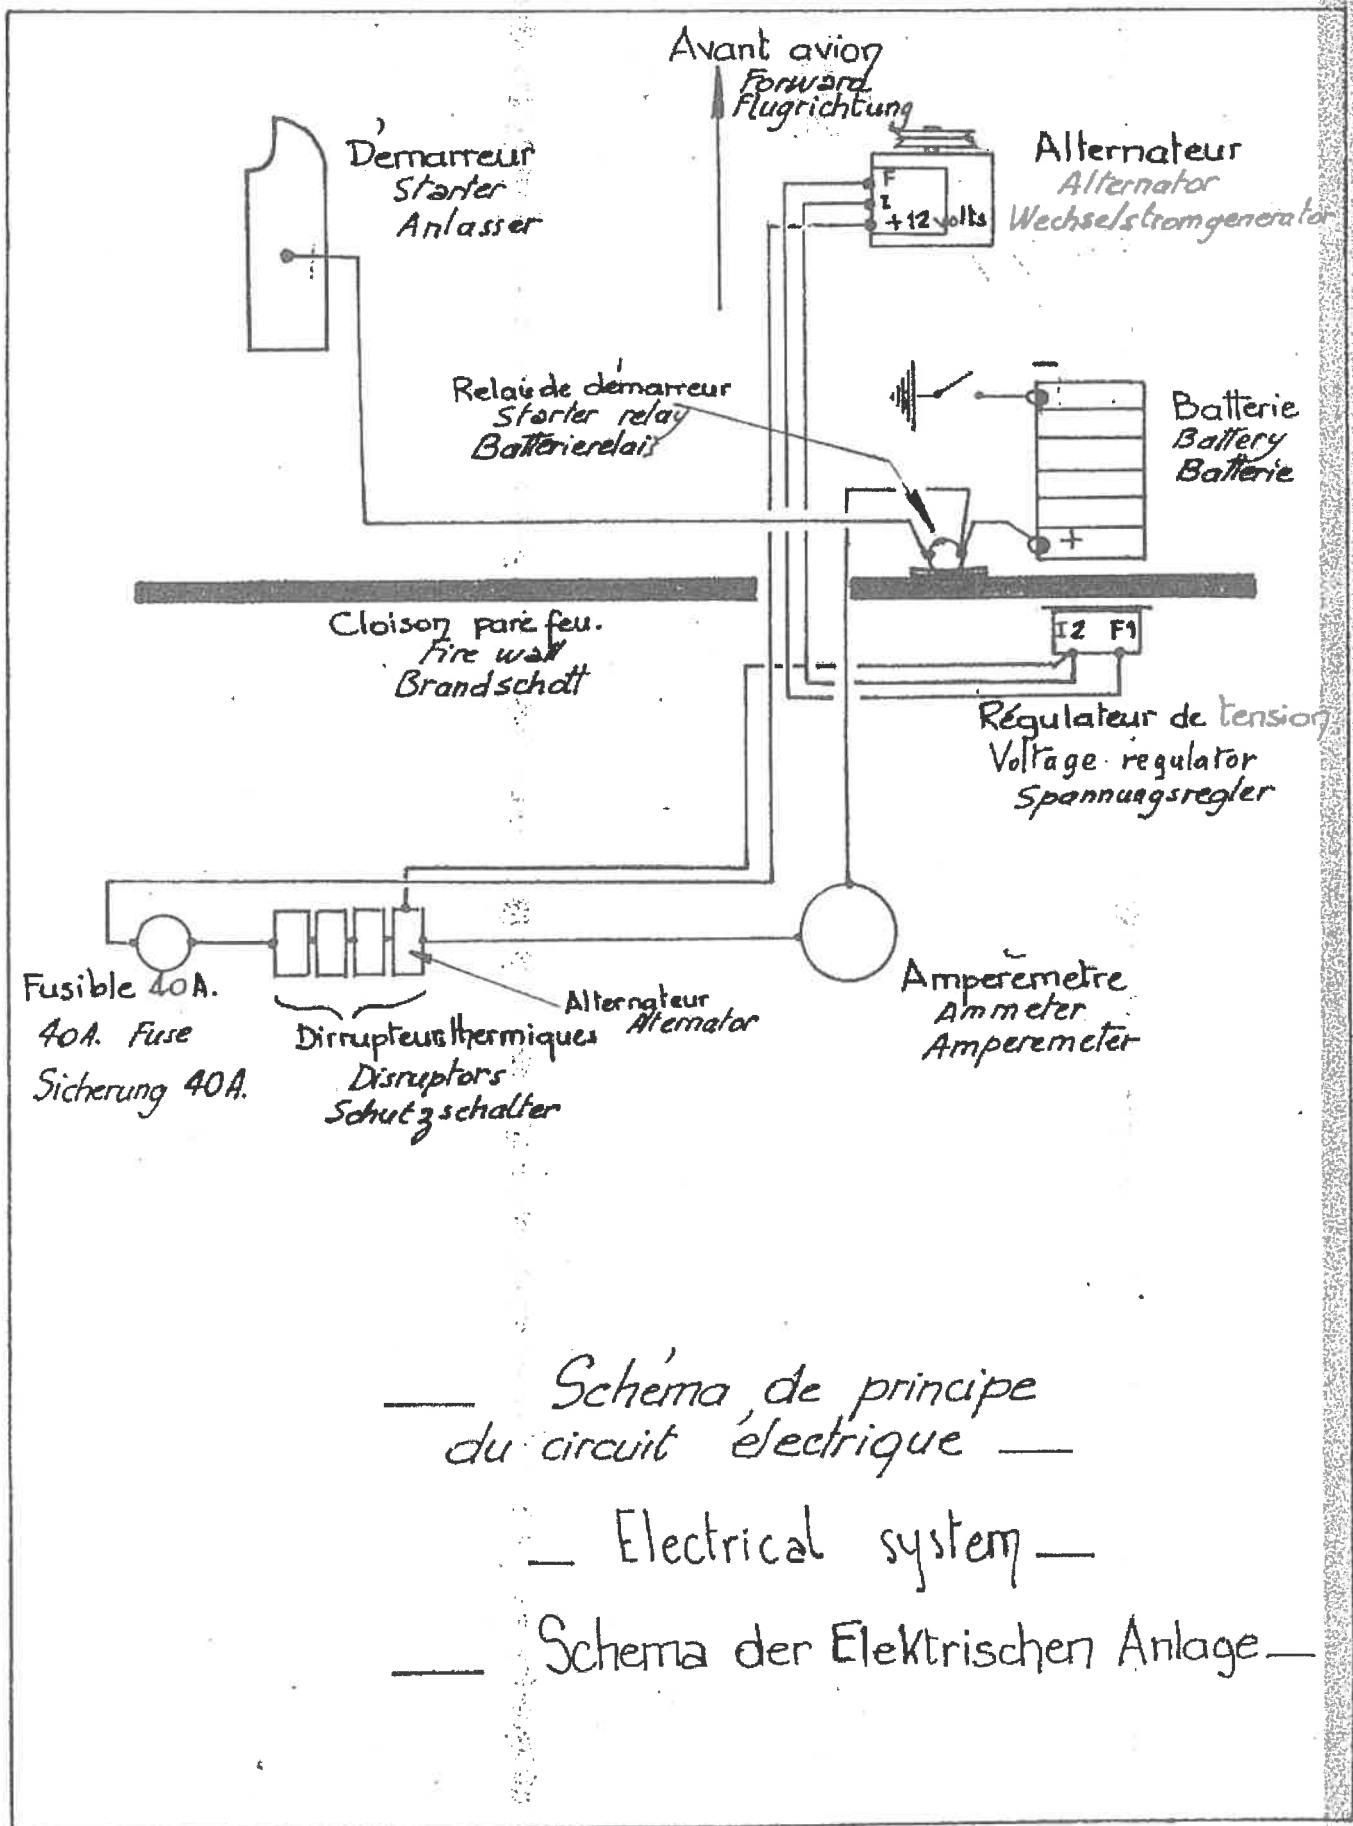 Avant avion
Forward
Flugrichtung
Démarreur
Starter
Anlasser
F
I
+12 volts
Alternateur
Alternator
Wechselstromgenerator
Relais de démarreur
Starter relay
Batterierelais
−
+
Batterie
Battery
Batterie
Cloison pare feu.
Fire wall
Brandschott
I2 F1
Régulateur de tension
Voltage regulator
Spannungsregler
Fusible 40A.
40A. Fuse
Sicherung 40A.
Alternateur
Aternator
Dirrupteurs thermiques
Disruptors
Schutzschalter
Ampèremètre
Ammeter
Amperemeter
— Schéma de principe
du circuit électrique —
— Electrical system —
— Schema der Elektrischen Anlage —